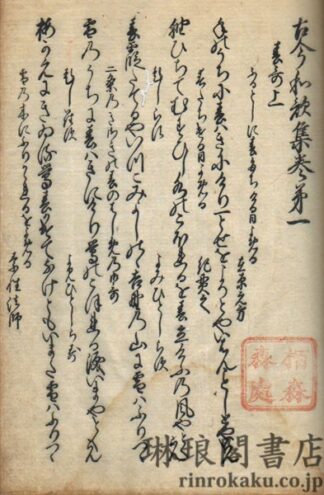 古今和歌集巻第一
春哥上
ふるとしに春たちける日よめる 在原元方
年のうちに春はきにけり一とせをこそとやいはんことしとやいはん
春たちける日よめる 紀貫之
袖ひちてむすひし水のこほれるを春立けふの風やとくらん
題しらす よみひとしらす
春霞たてるやいつこみよしのゝ吉野の山に雪はふりつゝ
二条のきさきの春のはしめの御哥
雪のうちに春はきにけり鶯のこほれる涙いまやとくらん
題しらす よみひとしらす
梅かえにきゐる鶯春かけてなけともいまた雪はふりつゝ
雪の木にふりかゝれるをよめる 素性法師
琳琅閣書店
rinrokaku.co.jp